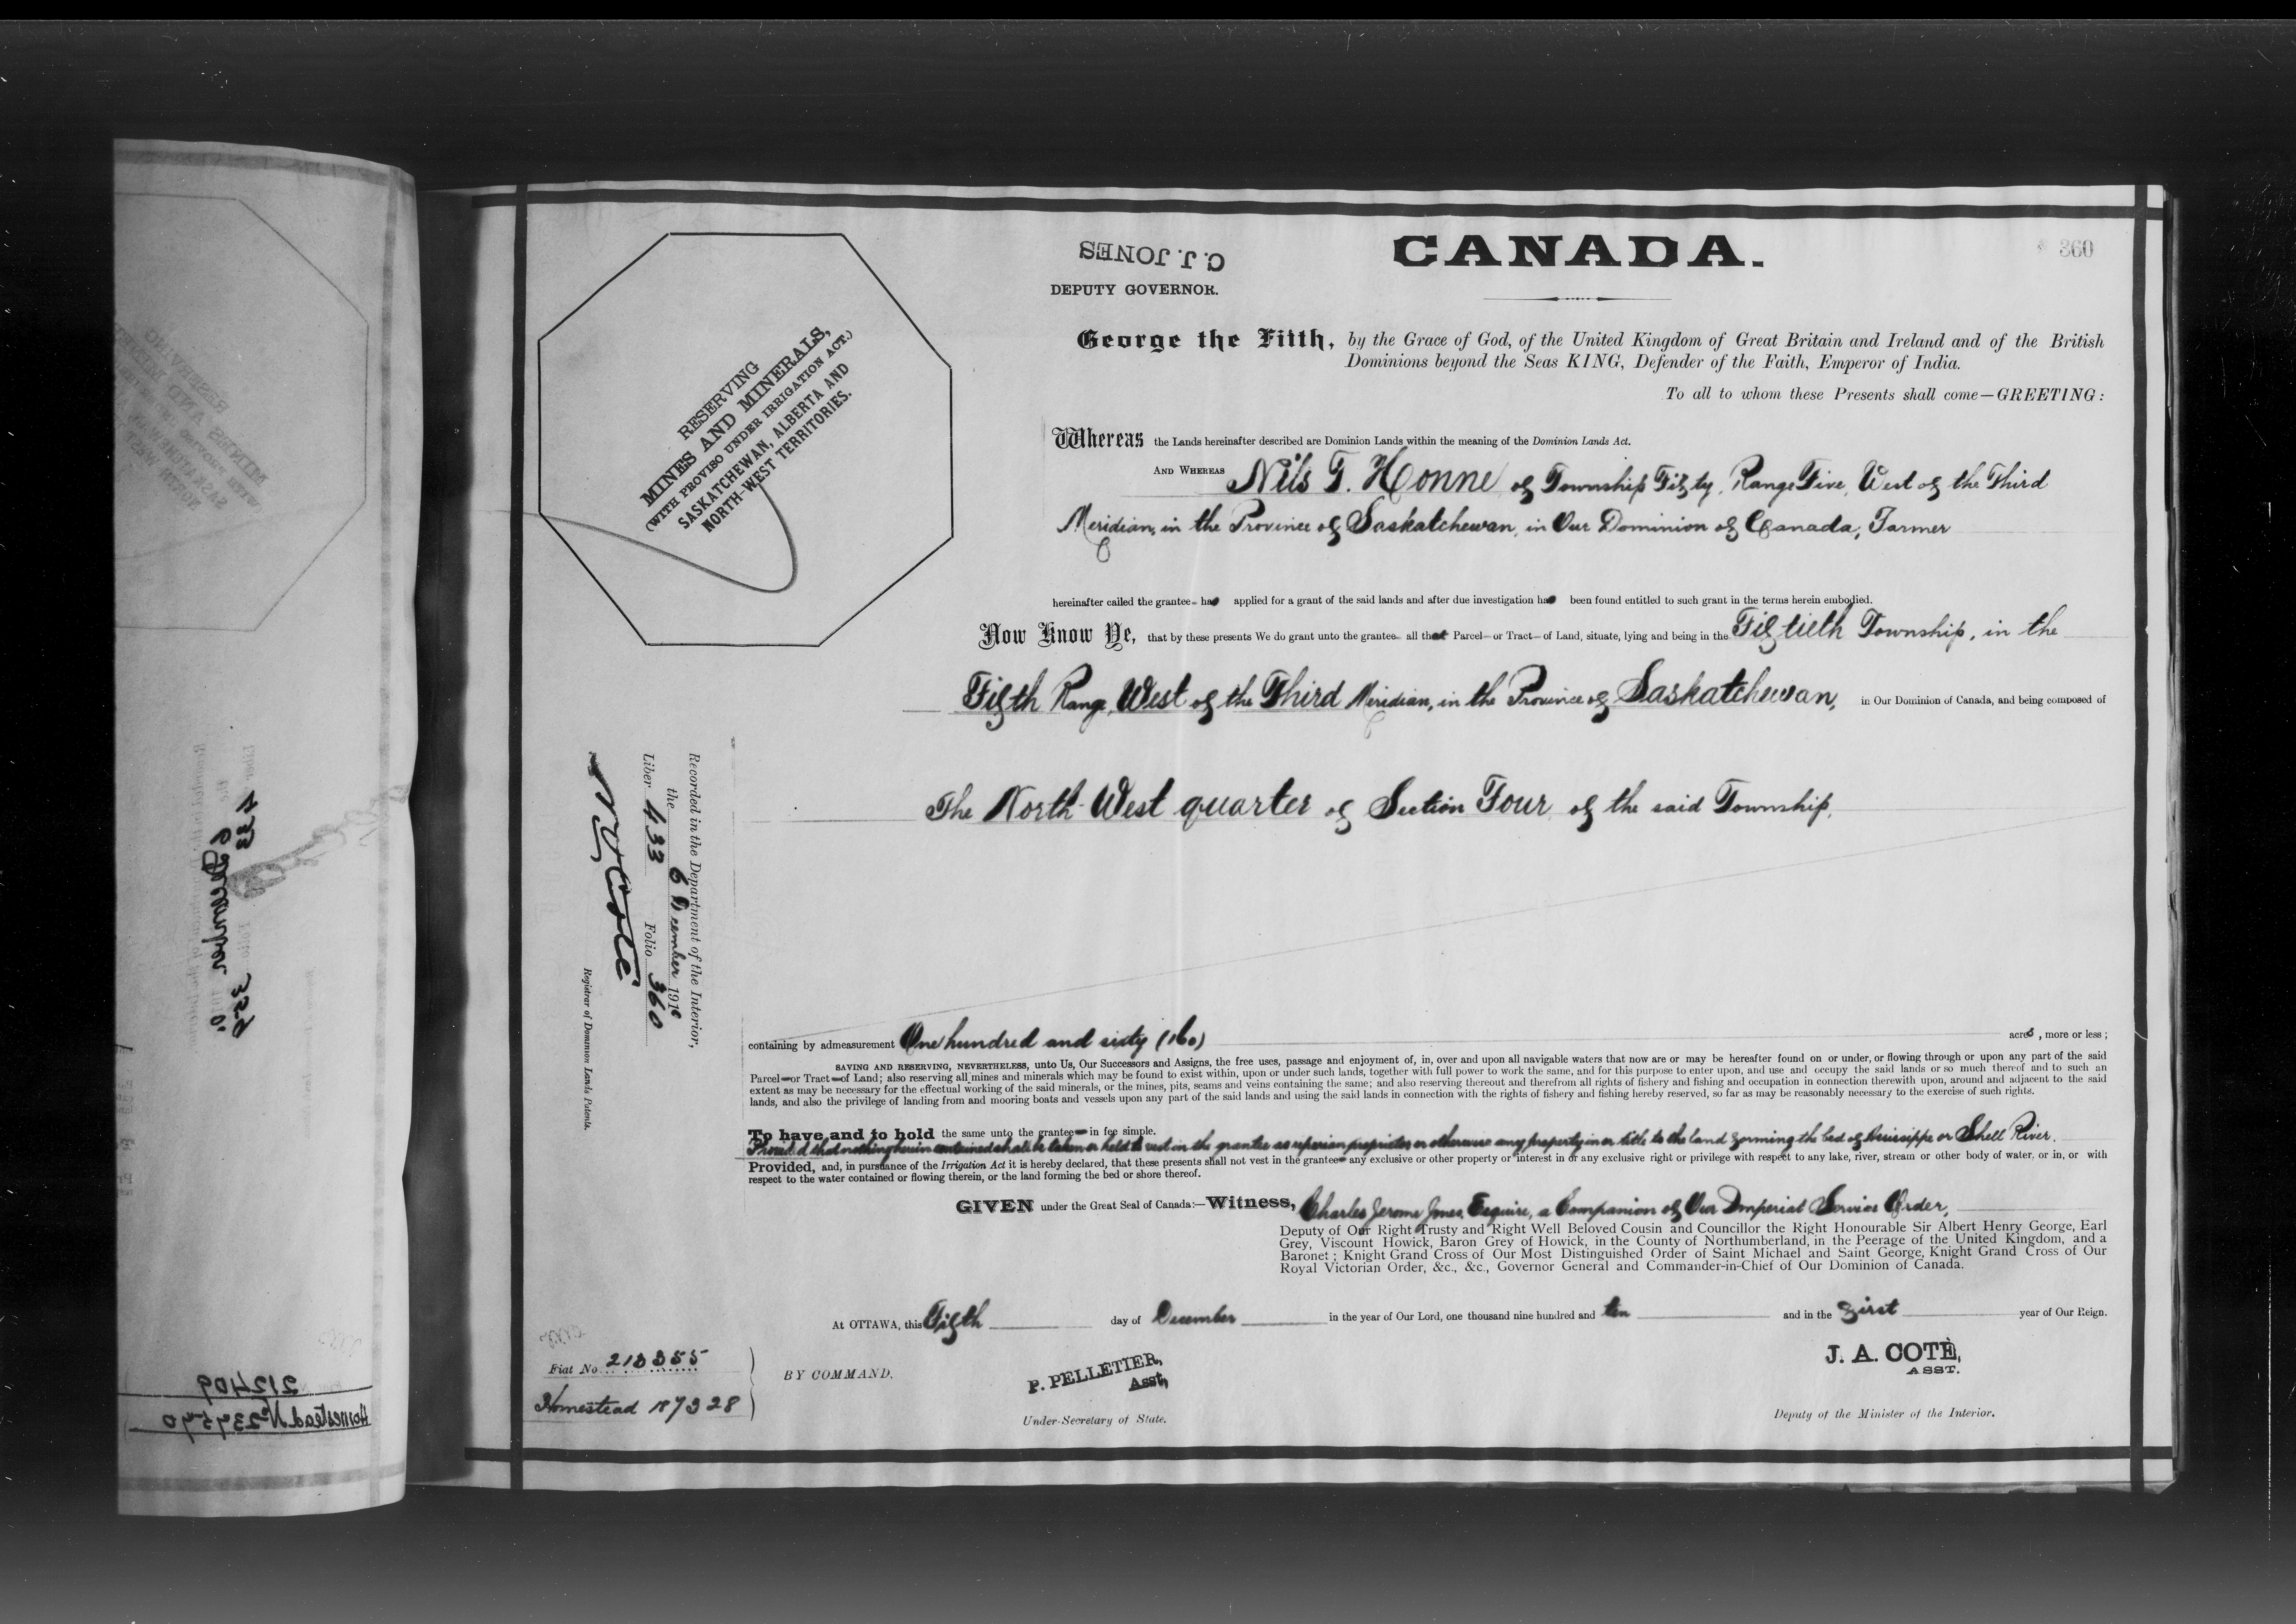 C. J. JONES
DEPUTY GOVERNOR.
CANADA.
360
RESERVING
MINES AND MINERALS,
(WITH PROVISO UNDER IRRIGATION ACT.)
SASKATCHEWAN, ALBERTA AND
NORTH-WEST TERRITORIES.
George the Fifth, by the Grace of God, of the United Kingdom of Great Britain and Ireland and of the British
Dominions beyond the Seas KING, Defender of the Faith, Emperor of India.
To all to whom these Presents shall come—GREETING:
Whereas the Lands hereinafter described are Dominion Lands within the meaning of the Dominion Lands Act.
AND WHEREAS Nils T. Honne of Township Fifty, Range Five, West of the Third
Meridian, in the Province of Saskatchewan, in Our Dominion of Canada, Farmer
hereinafter called the grantee has applied for a grant of the said lands and after due investigation has been found entitled to such grant in the terms herein embodied.
Now Know Ye, that by these presents We do grant unto the grantee all that Parcel or Tract of Land, situate, lying and being in the Fiftieth Township, in the
Fifth Range, West of the Third Meridian, in the Province of Saskatchewan, in Our Dominion of Canada, and being composed of
The North West quarter of Section Four of the said Township.
Recorded in the Department of the Interior,
the 6 December 1910
Liber 433 Folio 360
N. O. Coté
Registrar of Dominion Lands Patents.
containing by admeasurement One hundred and sixty (160) acres, more or less;
SAVING AND RESERVING, NEVERTHELESS, unto Us, Our Successors and Assigns, the free uses, passage and enjoyment of, in, over and upon all navigable waters that now are or may be hereafter found on or under, or flowing through or upon any part of the said
Parcel or Tract of Land; also reserving all mines and minerals which may be found to exist within, upon or under such lands, together with full power to work the same, and for this purpose to enter upon, and use and occupy the said lands or so much thereof and to such an
extent as may be necessary for the effectual working of the said minerals, or the mines, pits, seams and veins containing the same; and also reserving thereout and therefrom all rights of fishery and fishing and occupation in connection therewith upon, around and adjacent to the said
lands, and also the privilege of landing from and mooring boats and vessels upon any part of the said lands and using the said lands in connection with the rights of fishery and fishing hereby reserved, so far as may be reasonably necessary to the exercise of such rights.
To have and to hold the same unto the grantee in fee simple.
Provided that nothing herein contained shall be taken or held to vest in the grantee as riparian proprietor or otherwise any property in or title to the land forming the bed of Assissippe or Shell River.
Provided, and, in pursuance of the Irrigation Act it is hereby declared, that these presents shall not vest in the grantee any exclusive or other property or interest in or any exclusive right or privilege with respect to any lake, river, stream or other body of water, or in, or with
respect to the water contained or flowing therein, or the land forming the bed or shore thereof.
GIVEN under the Great Seal of Canada:—Witness, Charles Jerome Jones, Esquire, a Companion of Our Imperial Service Order,
Deputy of Our Right Trusty and Right Well Beloved Cousin and Councillor the Right Honourable Sir Albert Henry George, Earl
Grey, Viscount Howick, Baron Grey of Howick, in the County of Northumberland, in the Peerage of the United Kingdom, and a
Baronet; Knight Grand Cross of Our Most Distinguished Order of Saint Michael and Saint George, Knight Grand Cross of Our
Royal Victorian Order, &c., &c., Governor General and Commander-in-Chief of Our Dominion of Canada.
At OTTAWA, this Fifth day of December in the year of Our Lord, one thousand nine hundred and ten and in the first year of Our Reign.
Fiat No. 213355
Homestead 187328
BY COMMAND,
P. PELLETIER,
Asst,
Under-Secretary of State.
J. A. COTÈ,
ASST.
Deputy of the Minister of the Interior.
212409
Homestead No 239540